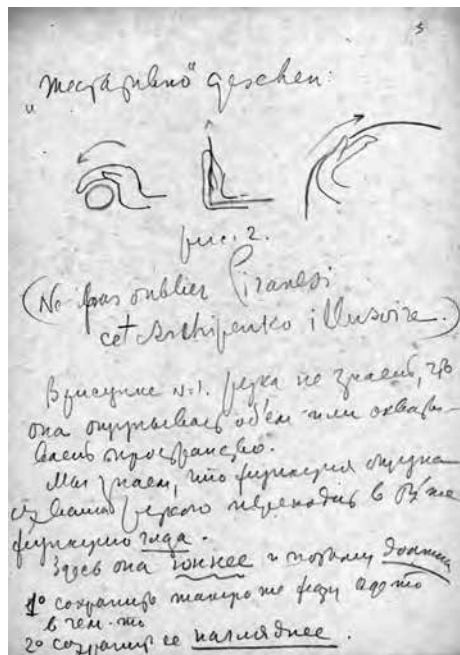 5
"жестативно" geschen:
фиг. 2.
(Ne pas oublier Piranesi
et Archipenko illusoire.)
В рисунке №1. рука не знает, что
она ощупывает объем или охваты-
вает пространство.
Мы знаем, что функция ощупы
рукою переходит в
функцию глаза.
Здесь она и потому должна
1° сохранить же
в чем-то
2° сохранить ее нагляднее.